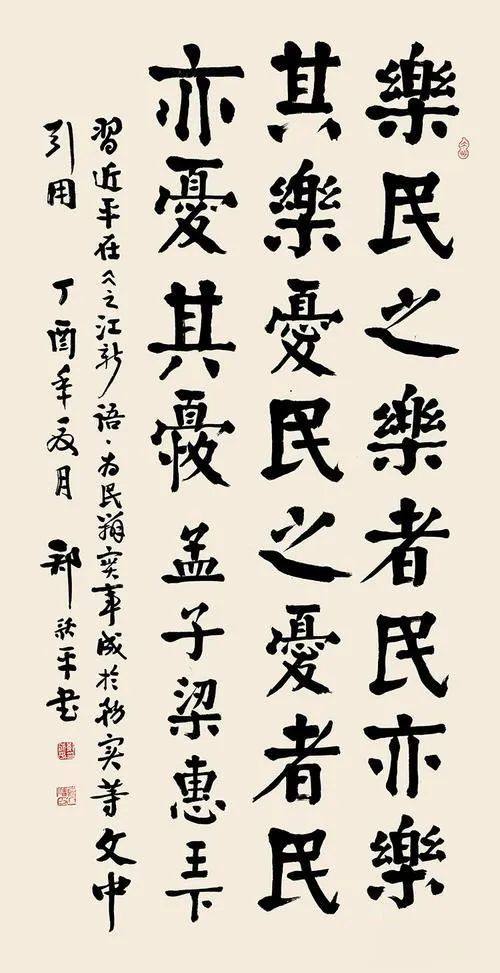 樂民之樂者民亦樂
其樂憂民之憂者民
亦憂其憂 孟子梁惠王下
習近平在《之江新語·为民辦实事成於務实等文中
引用 丁酉年夏月 郑平书